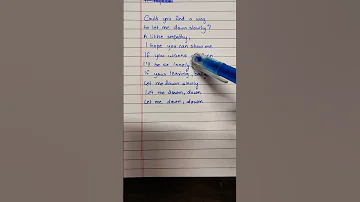 Could you find a way
to let me down slowly?
A little sympathy,
I hope you can show me
If you wanna
I'll be so lonely
If you leaving,
Let me down slowly
Let me down, down
Let me down, down